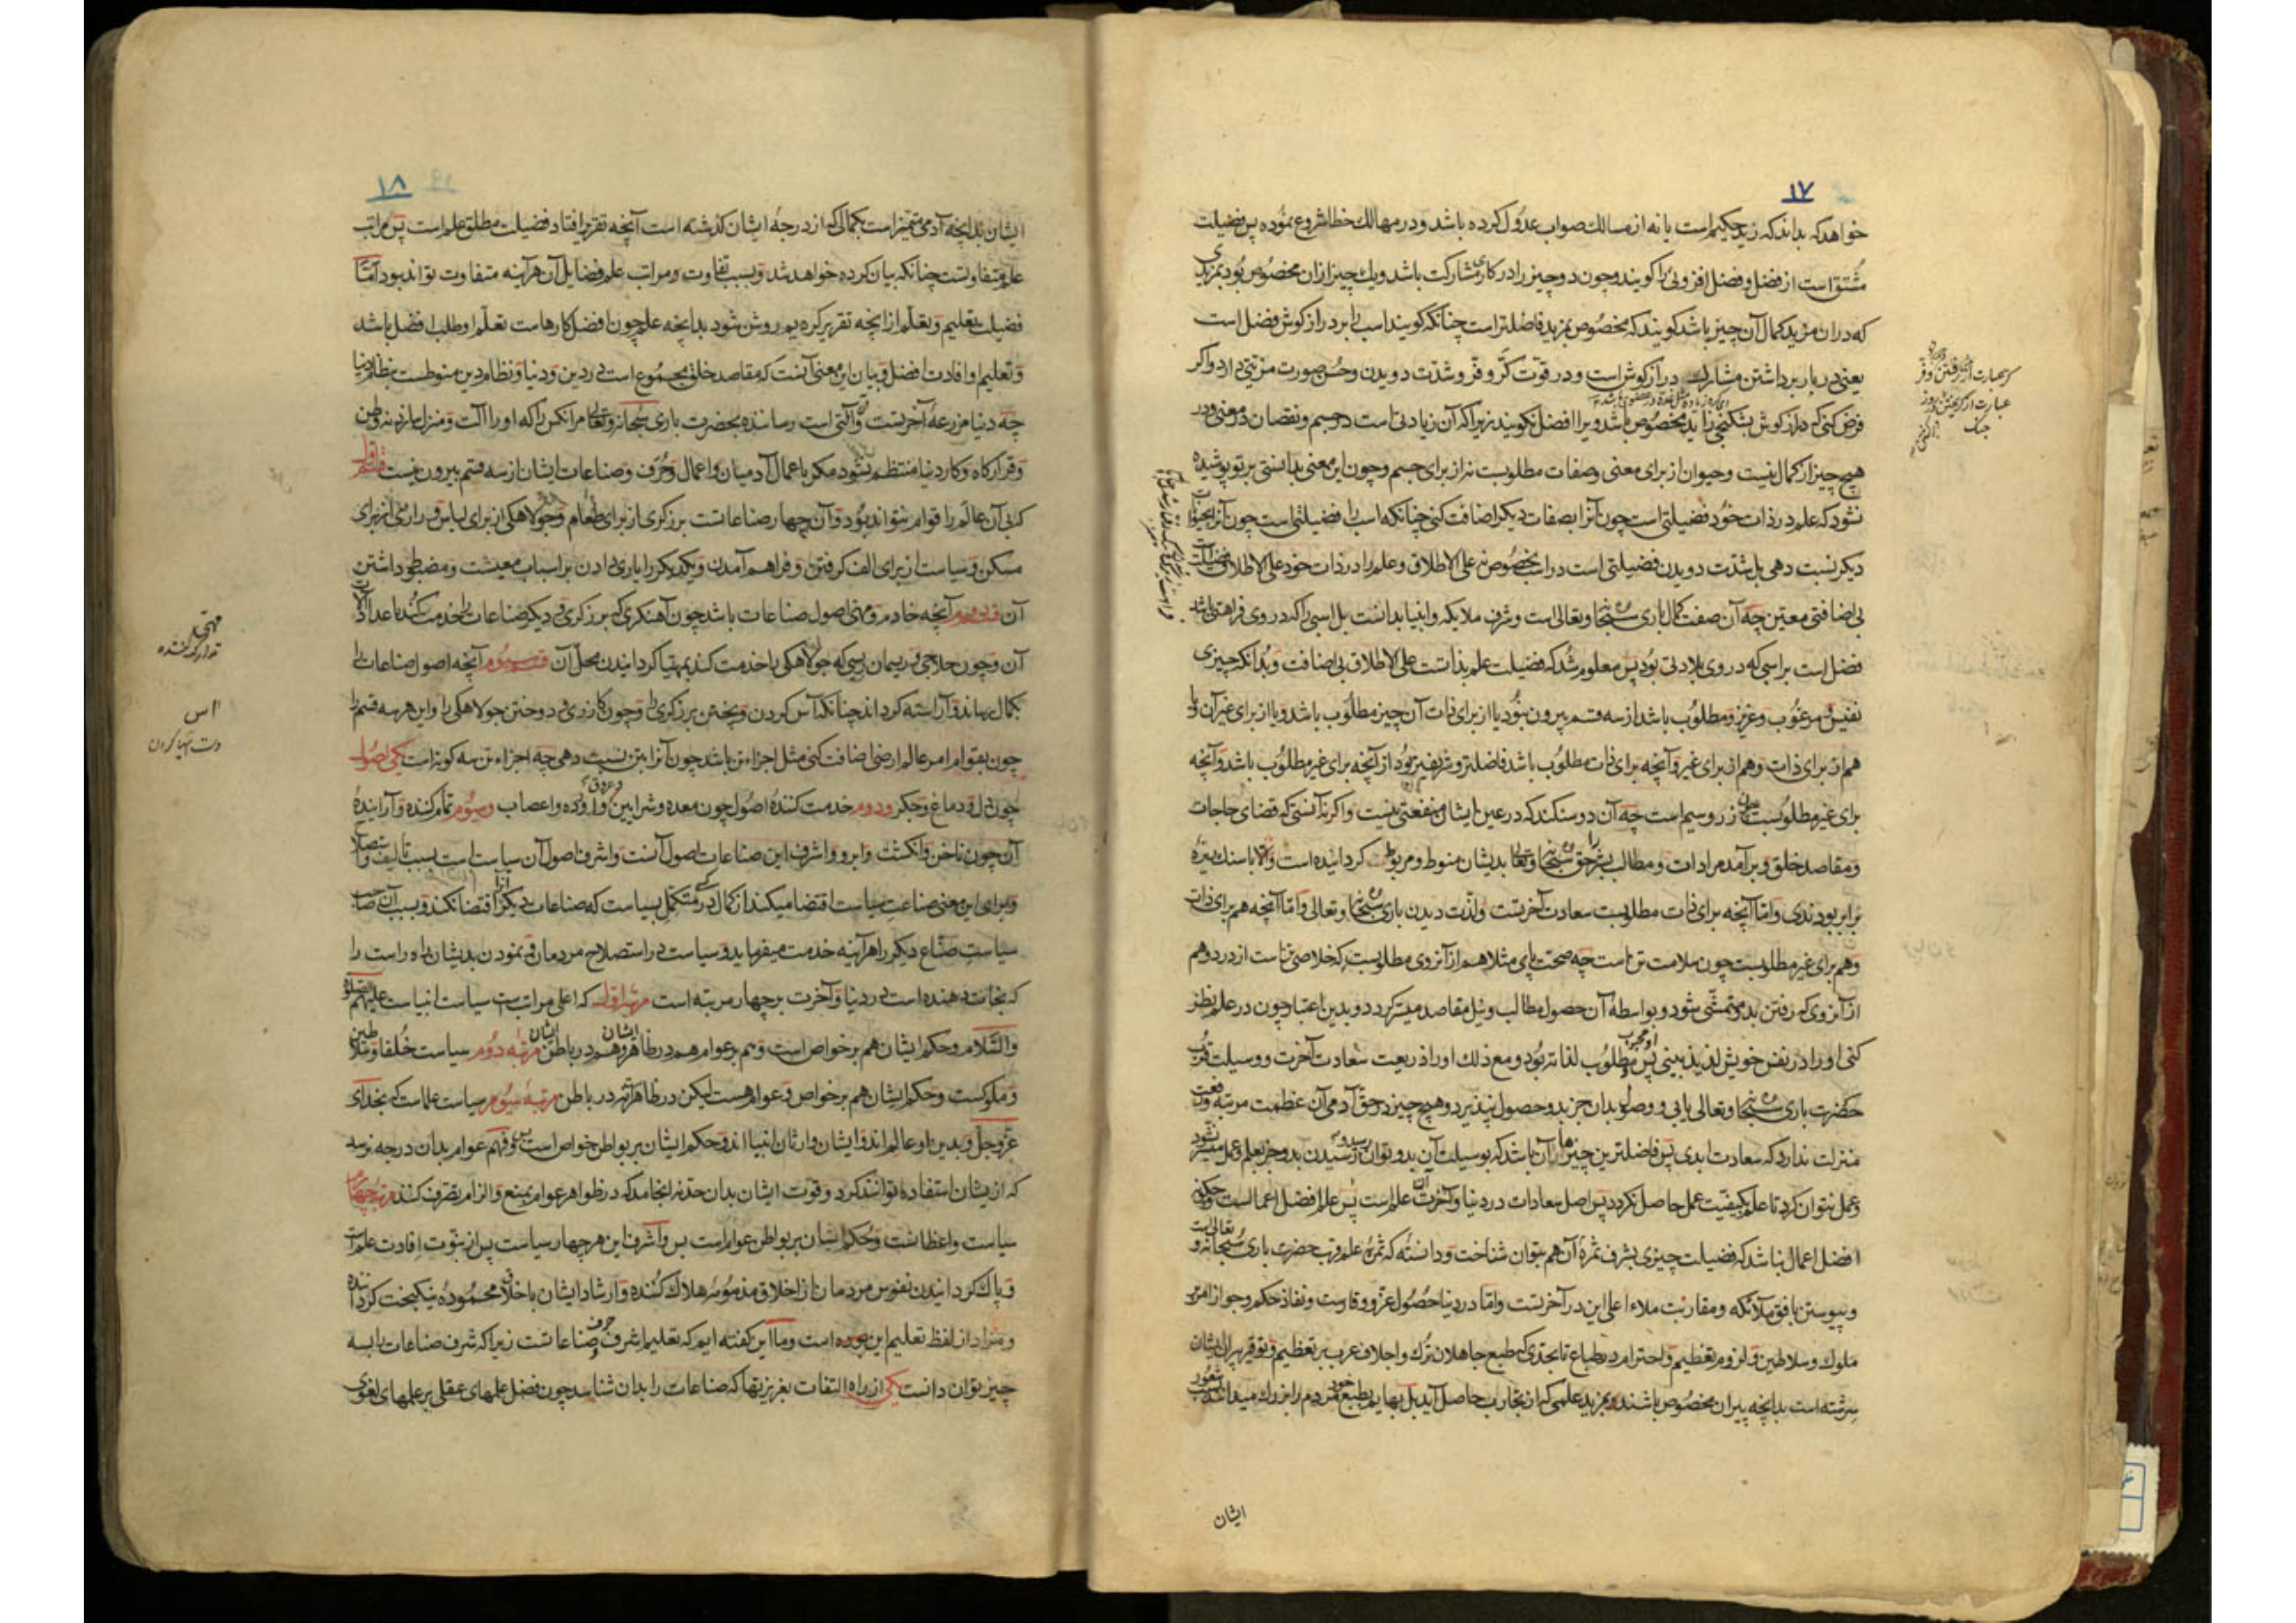 ۱۷
خواهد که بداند که زید حکیم است یا نه از مسالك صواب عدول کرده باشد و در مهالك خطا شروع نموده پس فضیلت
مشتق است از فضل و فضل افزونی را کویند و چون دو چیز را در کاری مشارکت باشد و یك چیز ازان مخصوص بود بمزیدی
که دران مزید کمال آن چیز باشد کویند که مخصوص بمزید فاضلتر است چنانکه کویند اسب را بر درازکوش فضل است
یعنی در بار برداشتن مشارك درازکوش است و در قوت کر و فر و شدت دویدن و حسن صورت مزیتی دارد و اکر
فرض کنی که درازکوش بشکنجی زاید مخصوص باشد ویرا افضل نکویند زیرا که آن زیادتی است در جسم و نقصان در معنی و در
هیچ چیز از کمال نیست و حیوان از برای معنی و صفات مطلوبست نه از برای جسم و چون این معنی بدانستی بر تو پوشیده
نشود که علم در ذات خود فضیلتی است چون آنرا بصفات دیکر اضافت کنی چنانکه اسب را فضیلتی است چون آنرا بحیوانات
دیکر نسبت دهی بل شدت دویدن فضیلتی است در اسب بخصوص نه علی الاطلاق و علم را در ذات خود علی الاطلاق فضیلت است
بی اضافتی معین چه آن صفت کمال باری سبحانه و تعالی است و شرف ملایکه و انبیا بدانست بل اسبی را که در وی فراهتی باشد
فضل است بر اسبی که در وی بلادتی بود پس معلوم شد که فضیلت علم بذاتست علی الاطلاق بی اضافت و بدانکه چیزی
نفیس و مرغوب و عزیز و مطلوب باشد از سه قسم بیرون نبود یا از برای ذات آن چیز مطلوب باشد و یا از برای غیر آن و یا
هم از برای ذات و هم از برای غیر و آنچه برای ذات مطلوب باشد فاضلتر و شریفتر بود از آنچه برای غیر مطلوب باشد و آنچه
برای غیر مطلوبست زر و سیم است چه آن دو سنکند که در عین ایشان منفعتی نیست و اکر نه آنستی که قضای حاجات
و مقاصد خلق و برآمد مرادات و مطالب بشر را حق سبحانه و تعالی بدیشان منوط و مربوط کردانیده است والا با سنك ریزه
برابر بودندی و اما آنچه برای ذات مطلوبست سعادت آخرتست و لذت دیدن باری سبحانه و تعالی و اما آنچه هم برای ذات
و هم برای غیر مطلوبست چون سلامت تن است چه صحت پای مثلا هم از آنروی مطلوبست که خلاصی تن است از درد و هم
از آنروی که رفتن بدو متمشی شود و بواسطه آن حصول مطالب و نیل مقاصد میسر کردد و بدین اعتبار چون در علم نظر
کنی او را در نفس خویش لذیذ بینی پس او مطلوب لذاته بود و مع ذلك او را ذریعت سعادت آخرت و وسیلت قرب
حضرت باری سبحانه و تعالی یابی و وصول بدان جز بدو حصول نپذیرد و هیچ چیز در حق آدمی آن عظمت مرتبه و رفعت
منزلت ندارد که سعادت ابدی پس فاضلترین چیزها آن باشد که بوسیلت آن بدو توان رسید و رسیدن بدو جز بعلم و عمل میسر نشود
و عمل نتوان کرد تا علم بکیفیت عمل حاصل نکردد پس اصل سعادات در دنیا و آخرت علم است پس علم افضل اعمالست و چکونه
افضل اعمال نباشد که فضیلت چیزی بشرف ثمره آن هم بتوان شناخت و دانسته که ثمره علم قرب حضرت باری سبحانه و تعالی است
و پیوستن بافق ملائکه و مقاربت ملاء اعلی این در آخرتست و اما در دنیا حصول عز و وقارست و نفاذ حکم و جواز امر بر
ملوك و سلاطین و لزوم تعظیم و احترام در طباع تا بحدی که طبع جاهلان ترك و اجلاف عرب بر تعظیم و توقیر پیران ایشان
سرشته است بدانچه پیران مخصوص باشند بمزید علمی که از تجارب حاصل آید بل بهایم بطبع خود مردم را بزرك میدانند بسبب شعور
ایشان
۱۸
ایشان بدانچه آدمی متمیز است بکمالی که از درجه ایشان کذشته است آنچه تقریر افتاد فضیلت مطلق علم است پس مراتب
علم متفاوتست چنانکه بیان کرده خواهد شد و بسبب تفاوت مراتب علم فضایل آن هر آینه متفاوت تواند بود اما
فضیلت تعلیم و تعلم از انچه تقریر کردیم روشن شود بدانچه علم چون افضل کارهاست تعلم او طلب افضل باشد
و تعلیم او افادت افضل و بیان این معنی آنست که مقاصد خلق مجموع است در دین و دنیا و نظام دین منوطست بنظام دنیا
چه دنیا مزرعه آخرتست و آلتی است رساننده بحضرت باری سبحانه و تعالی مر انکس را که او را آلت و منزل سازد نه وطن
و قرارکاه و کار دنیا منتظم نشود مکر باعمال آدمیان و اعمال و حرف و صناعات ایشان از سه قسم بیرون نیست قسم اول
که بی آن عالم را قوام نتواند بود و آن چهار صناعاتست برزکری از برای طعام و جولاهکی از برای لباس و درازی از برای
مسکن و سیاست از برای الف کرفتن و فراهم آمدن و یکدیکر را یاری دادن بر اسباب معیشت و مضبوط داشتن
آن قسم دوم آنچه خادم و مهنی اصول صناعات باشد چون آهنکری که برزکری و دیکر صناعات را خدمت کند باعداد آلات
آن و چون حلاجی و ریسمان ریسی که جولاهکی را خدمت کند بمهیا کردانیدن محل آن قسم سیوم آنچه اصول صناعات را
بکمال رساند و آراسته کرداند چنانکه آس کردن و پختن برزکری را و چون کازری و دوختن جولاهکی را و این هر سه قسم را
چون بقوام امر عالم ارضی اضافت کنی مثل اجزاء تن باشد چون آنرا بتن نسبت دهی چه اجزاء تن سه کونه است یکی اصول
چون دل و دماغ و جکر و دوم خدمت کننده اصول چون معده و شرایین و عروق و اورده و اعصاب و سیوم تمام کننده و آراینده
آن چون ناخن و انکشت و ابرو و اشرف این صناعات اصول آنست و اشرف اصول آن سیاست است بسبب تالیف و استصلاح
و برای این معنی صناعت سیاست اقتضا میکند از کمال در متکفل سیاست که صناعات دیکر آنرا اقتضا نکند و بسبب آن صاحب
سیاست صناع دیکر را هر آینه خدمت میفرماید و سیاست در استصلاح مردمان و نمودن بدیشان راه راست را
که نجات دهنده است در دنیا و آخرت بر چهار مرتبه است مرتبه اول که اعلی مراتب است سیاست انبیاست علیهم الصلوة
والسلام و حکم ایشان هم بر خواص است و هم بر عوام هم در ظاهر ایشان و هم در باطن ایشان مرتبه دوم سیاست خلفا و سلاطین
و ملوکست و حکم ایشان هم بر خواص و عوام هست لیکن در ظاهر نه در باطن مرتبه سیوم سیاست علماست که بخدای
عز و جل و بدین او عالم اند و ایشان وارثان انبیا اند و حکم ایشان بر بواطن خواص است بس و فهم عوام بدان درجه نرسه
که از یشان استفاده توانند کرد و قوت ایشان بدان حد نه انجامد که در ظواهر عوام بمنع و الزام تصرف کنند مرتبه چهارم
سیاست واعظانست و حکم ایشان بر بواطن عوام است بس و اشرف این هر چهار سیاست پس از نبوت افادت علم است
و پاك کردانیدن نفوس مردمان از اخلاق مذمومه هلاك کننده و ارشاد ایشان باخلاق محموده نیکبخت کرداننده
و مراد از لفظ تعلیم این بوده است و ما این کفته ایم که تعلیم اشرف حرف و صناعاتست زیرا که شرف صناعات را بسه
چیز توان دانست یکی از راه التفات بغریزتها که صناعات را بدان شناسد چون فضل علمهای عقلی بر علمهای لغوی
اس